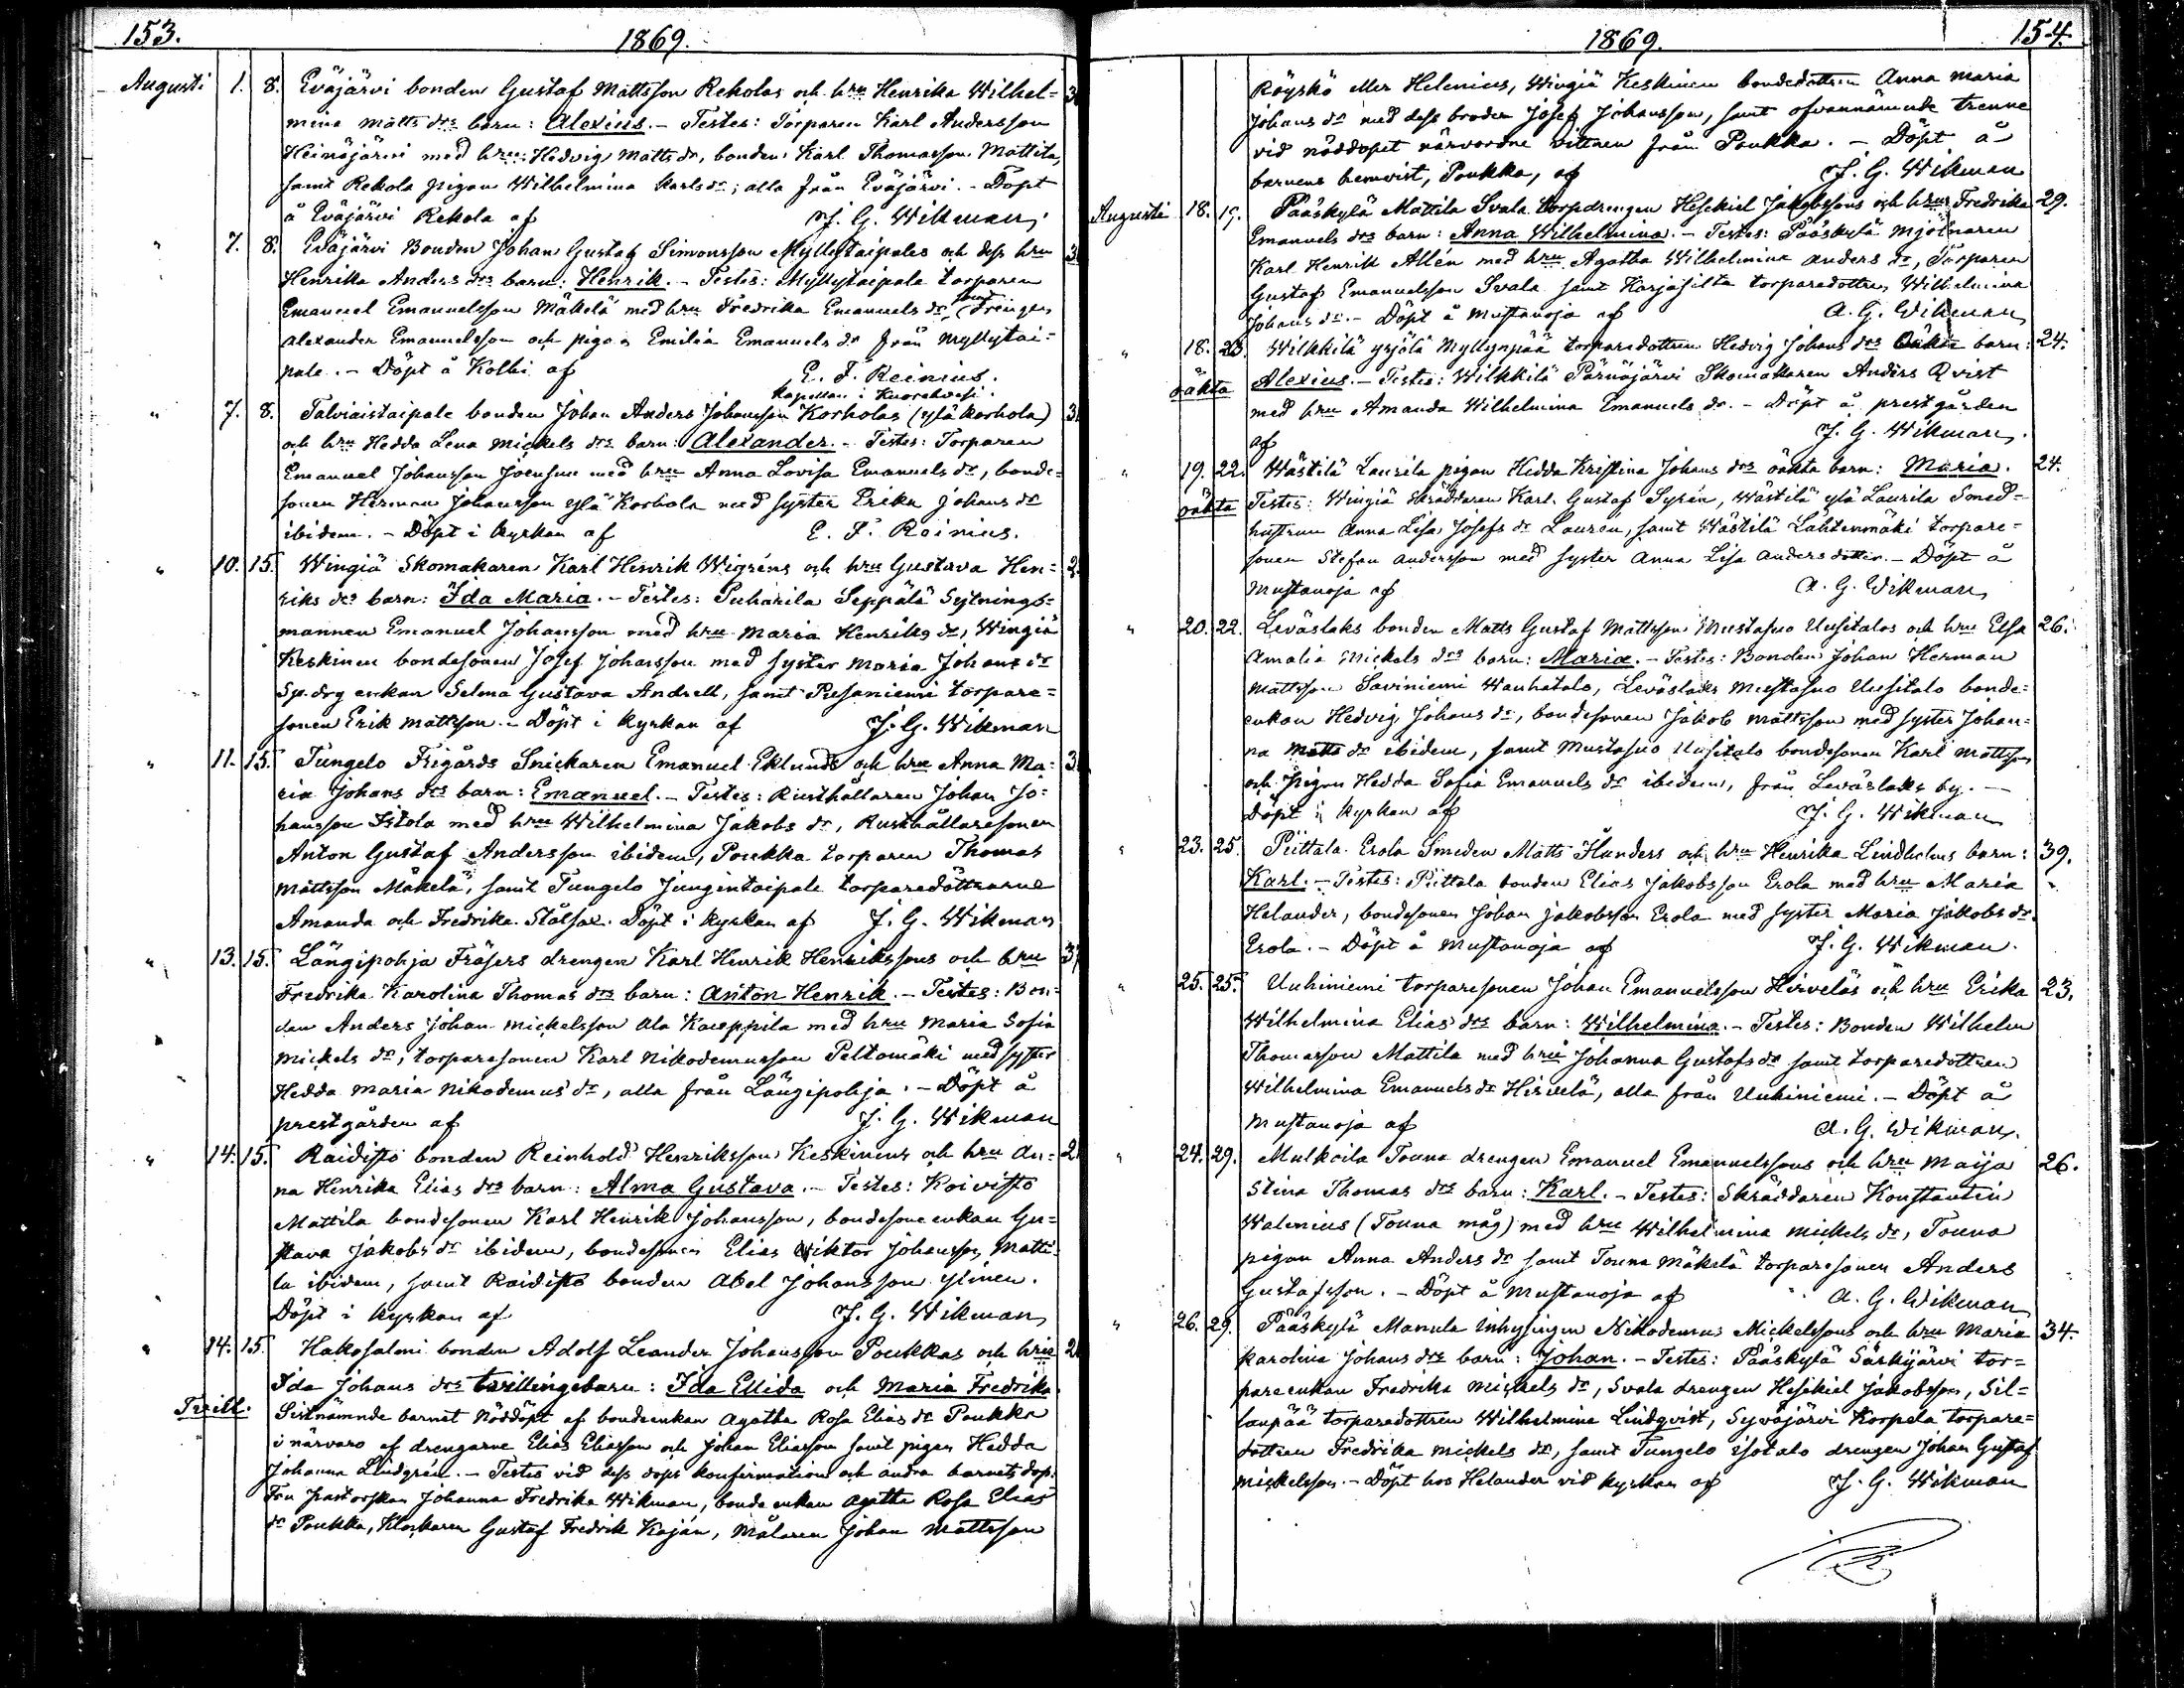 153.
1869.
Augusti 1. 8. Eväjärvi bonden Gustaf Mattsson Rekolas och hru Henrika Wilhel=
mina Matts drs barn: Alexius. - Testes: Torparen Karl Andersson
Heinäjärvi med hru Hedvig Matts dr, bonden Karl Thomasson Mattila,
samt Rekola pigan Wilhelmina Karls dr; alla från Eväjärvi. - Döpt
å Eväjärvi Rekola af J. G. Wikman,
" 7. 8. Eväjärvi Bonden Johan Gustaf Simonsson Myllytaipales och dess hru
Henrika Anders drs barn: Henrik. - Testes: Myllytaipale torparen
Emanuel Emanuelsson Mäkelä med hru Fredrika Emanuels dr, samt Drengen
Alexander Emanuelsson och pigan Emilia Emanuels dr från Myllytai=
pale. - Döpt å Kolhi af E. F. Reinius.
Kapellan i Kuorehvesi.
" 7. 8. Talviaistaipale bonden Johan Anders Johansson Korholas (ylä Korhola)
och hru Hedda Lena Mickels drs barn: Alexander. - Testes: Torparen
Emanuel Johansson Joensuu med hru Anna Lovisa Emanuels dr, bonde=
sonen Herman Johansson ylä Korhola med syster Erika Johans dr
ibidem. - Döpt i kyrkan af E. F. Reinius.
" 10. 15. Wingiä Skomakaren Karl Henrik Wigréns och hru Gustava Hen=
riks drs barn: Ida Maria. - Testes: Puharila Seppälä Sytnings=
mannen Emanuel Johansson med hru Maria Henriks dr, Wingiä
Keskinen bondesonen Josef Johansson med syster Maria Johans dr
Sp. drg enkan Selma Gustava Andrell, samt Pusaniemi torpare=
sonen Erik Mattsson. - Döpt i Kyrkan af J. G. Wikman
" 11. 15. Tungelo Frigårds Snickaren Emanuel Eklunds och hru Anna Ma=
ria Johans drs barn: Emanuel. - Testes: Rusthållaren Johan Jo=
hansson Istola med hru Wilhelmina Jakobs dr, Rusthållaresonen
Anton Gustaf Andersson ibidem, Poukka torparen Thomas
Mattsson Mäkelä, samt Tungelo Jungintaipale torparedöttrarne
Amanda och Fredrika Stålsax. Döpt i kyrkan af J. G. Wikman
" 13. 15. Längipohja Fräsers drengen Karl Henrik Henrikssons och hru
Fredrika Karolina Thomas drs barn: Anton Henrik. - Testes: Bon=
den Anders Johan Mickelsson Ala Kauppila med hru Maria Sofia
Mickels dr, torparesonen Karl Nikodemusson Peltomäki med syster
Hedda Maria Nikodemus dr, alla från Längipohja. - Döpt å
prestgården af J. G. Wikman
" 14. 15. Raidisto bonden Reinhold Henriksson Keskinens och hru An=
na Henrika Elias drs barn: Alma Gustava. - Testes: Koivisto
Mattila bondesonen Karl Henrik Johansson, bondesone enkan Gu=
stava Jakobs dr ibidem, bondesonen Elias Wiktor Johansson Matti=
la ibidem, samt Raidisto bonden Abel Johansson Ylinen.
Döpt i kyrkan af J. G. Wikman,
" 14. 15. Hakosalmi bonden Adolf Leander Johansson Poukkas och hru
Ida Johans drs tvillingebarn: Ida Ellida och Maria Fredrika.
Tvill. Sistnämnde barnet Nöddöpt af bondeenkan Agatha Rosa Elias dr Poukka
i närvaro af drengarne Elias Eliasson och Johan Eliasson samt pigan Hedda
Johanna Lindgrén. - Testes vid dess döps konfirmation och andra barnets dop:
Fru Pastorskan Johanna Fredrika Wikman, bonde enkan Agatha Rosa Elias
dr Poukka, Klockaren Gustaf Fredrik Kaján, Målaren Johan Mattsson
1869.
154.
Röyskö eller Helenius, Wingiä Keskinen bondedottren Anna Maria
Johans dr med dess broder Josef Johansson, samt ofvannämnde trenne
vid nöddopet närvordne vittnen från Poukka. - Döpt å
barnens hemvist, Poukka, af J. G. Wikman
Augusti 18. 19. Pääskylä Mattila Svala torpdrengen Hesekiel Jakobssons och hru Fredrika 29.
Emanuels drs barn: Anna Wilhelmina. - Testes: Pääskylä Mjölnaren
Karl Henrik Allén med hru Agatha Wilhelmina Anders dr, Torparen
Gustaf Emanuelsson Svala samt Harjasilta torparedottren Wilhelmina
Johans dr. - Döpt å Mustanoja af A. G. Wikman,
" 18. 23. Wilkkilä Yrjölä Myllynpää torparedottren Hedvig Johans drs Oäkta barn: 24.
oäkta Alexius. - Testes: Wilkkilä Pärnäjärvi Skomakaren Anders Qvist
med hru Amanda Wilhelmina Emanuels dr. - Döpt å prestgården
af J. G. Wikman.
" 19. 22. Wästilä Laurila pigan Hedda Kristina Johans drs oäkta barn: Maria. 24.
oäkta Testes: Wingiä Skräddaren Karl Gustaf Syrén, Wästilä ylä Laurila Smed=
hustrun Anna Lisa Josefs dr Lauren, samt Wästilä Lähtenmäki torpare=
sonen Stefan Andersson med syster Anna Lisa Anders dotter. - Döpt å
Mustanoja af A. G. Wikman,
" 20. 22. Leväslaks bonden Matts Gustaf Mattsson Mustasuo Uusitalos och hru Elsa 26.
Amalia Mickels drs barn: Maria. - Testes: Bonden Johan Herman
Mattsson Saviniemi Wanhatalo, Leväslaks Mustasuo Uusitalo bonde=
enkan Hedvig Johans dr, bondesonen Jakob Mattsson med syster Johan=
na Matts dr ibidem, samt Mustasuo Uusitalo bondesonen Karl Mattsson
och pigan Hedda Sofia Emanuels dr ibidem, från Leväslaks by. -
Döpt i kyrkan af J. G. Wikman
" 23. 25. Piittala Erola Smeden Matts Hunders och hru Henrika Lindholms barn: 39.
Karl. - Testes: Piittala bonden Elias Jakobsson Erola med hru Maria
Helander, bondesonen Johan Jakobsson Erola med syster Maria Jakobs dr
Erola. - Döpt å Mustanoja af J. G. Wikman.
" 25. 25. Unhiniemi torparesonen Johan Emanuelsson Hirveläs och hru Erika 23.
Wilhelmina Elias drs barn: Wilhelmina. - Testes: Bonden Wilhelm
Thomasson Mattila med hru Johanna Gustafs dr samt torparedottren
Wilhelmina Emanuels dr Hirvelä, alla från Unhiniemi. - Döpt å
Mustanoja af A. G. Wikman.
" 24. 29. Mulkoila Touna drengen Emanuel Emanuelssons och hru Maija 26.
Stina Thomas drs barn: Karl. - Testes: Skräddaren Konstantin
Walenius (Touna måg) med hru Wilhelmina Mickels dr, Touna
pigan Anna Anders dr samt Touna Mäkelä torparesonen Anders
Gustafsson. - Döpt å Mustanoja af A. G. Wikman
" 26. 29. Pääskylä Manula Inhysingen Nikodemus Mickelssons och hru Maria 34.
Karolina Johans drs barn: Johan. - Testes: Pääskylä Särkijärvi tor=
pareenkan Fredrika Mickels dr, Svala drengen Hesekiel Jakobsson, Sil=
lanpää torparedottren Wilhelmina Lindqvist, Syväjärvi Korpela torpare=
dottren Fredrika Mickels dr, samt Tungelo isotalo drengen Johan Gustaf
Mickelsson. - Döpt hos Helander vid kyrkan af J. G. Wikman